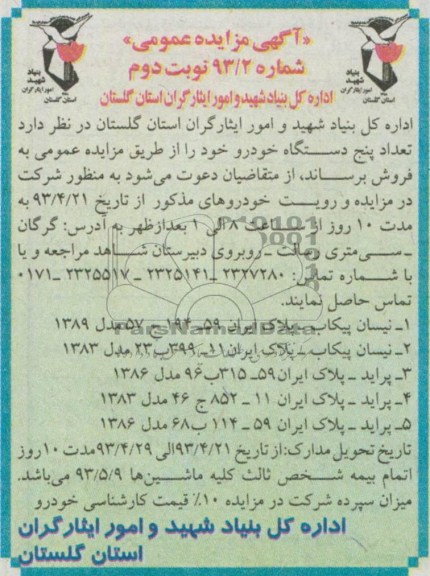 «آگهی مزایده عمومی»
شماره ۹۳/۲ نوبت دوم
اداره کل بنیاد شهید و امور ایثارگران استان گلستان
بنیاد شهید
امور ایثارگران
استان گلستان
بنیاد شهید
امور ایثارگران
استان گلستان
اداره کل بنیاد شهید و امور ایثارگران استان گلستان در نظر دارد
تعداد پنج دستگاه خودرو خود را از طریق مزایده عمومی به
فروش برساند، از متقاضیان دعوت می‌شود به منظور شرکت
در مزایده و رویت خودروهای مذکور از تاریخ ۹۳/۴/۲۱ به
مدت ۱۰ روز از ساعت ۸ الی ۱ بعدازظهر به آدرس: گرگان
ـ سی‌متری رسالت ـ روبروی دبیرستان شاهد مراجعه و یا
با شماره تماس: ۲۳۲۷۲۸۰ ـ ۲۳۲۵۱۴۱ ـ ۲۳۲۵۵۱۷ ـ ۰۱۷۱
تماس حاصل نمایند.
۱ـ نیسان پیکاب ـ پلاک ایران ۵۹ـ ۱۹۴ ج ۵۷ مدل ۱۳۸۹
۲ـ نیسان پیکاب ـ پلاک ایران ۱۱ـ ۳۹۹ب ۲۳ مدل ۱۳۸۳
۳ـ پراید ـ پلاک ایران ۵۹ـ ۳۱۵ب۹۶ مدل ۱۳۸۶
۴ـ پراید ـ پلاک ایران ۱۱ ـ ۸۵۲ ج ۴۶ مدل ۱۳۸۳
۵ـ پراید ـ پلاک ایران ۵۹ ـ ۱۱۴ ب۶۸ مدل ۱۳۸۶
تاریخ تحویل مدارک:از تاریخ ۹۳/۴/۲۱الی ۹۳/۴/۲۹مدت ۱۰روز
اتمام بیمه شخص ثالث کلیه ماشین‌ها ۹۳/۵/۹ می‌باشد.
میزان سپرده شرکت در مزایده ۱۰٪ قیمت کارشناسی خودرو
اداره کل بنیاد شهید و امور ایثارگران
استان گلستان
ParsNamadData